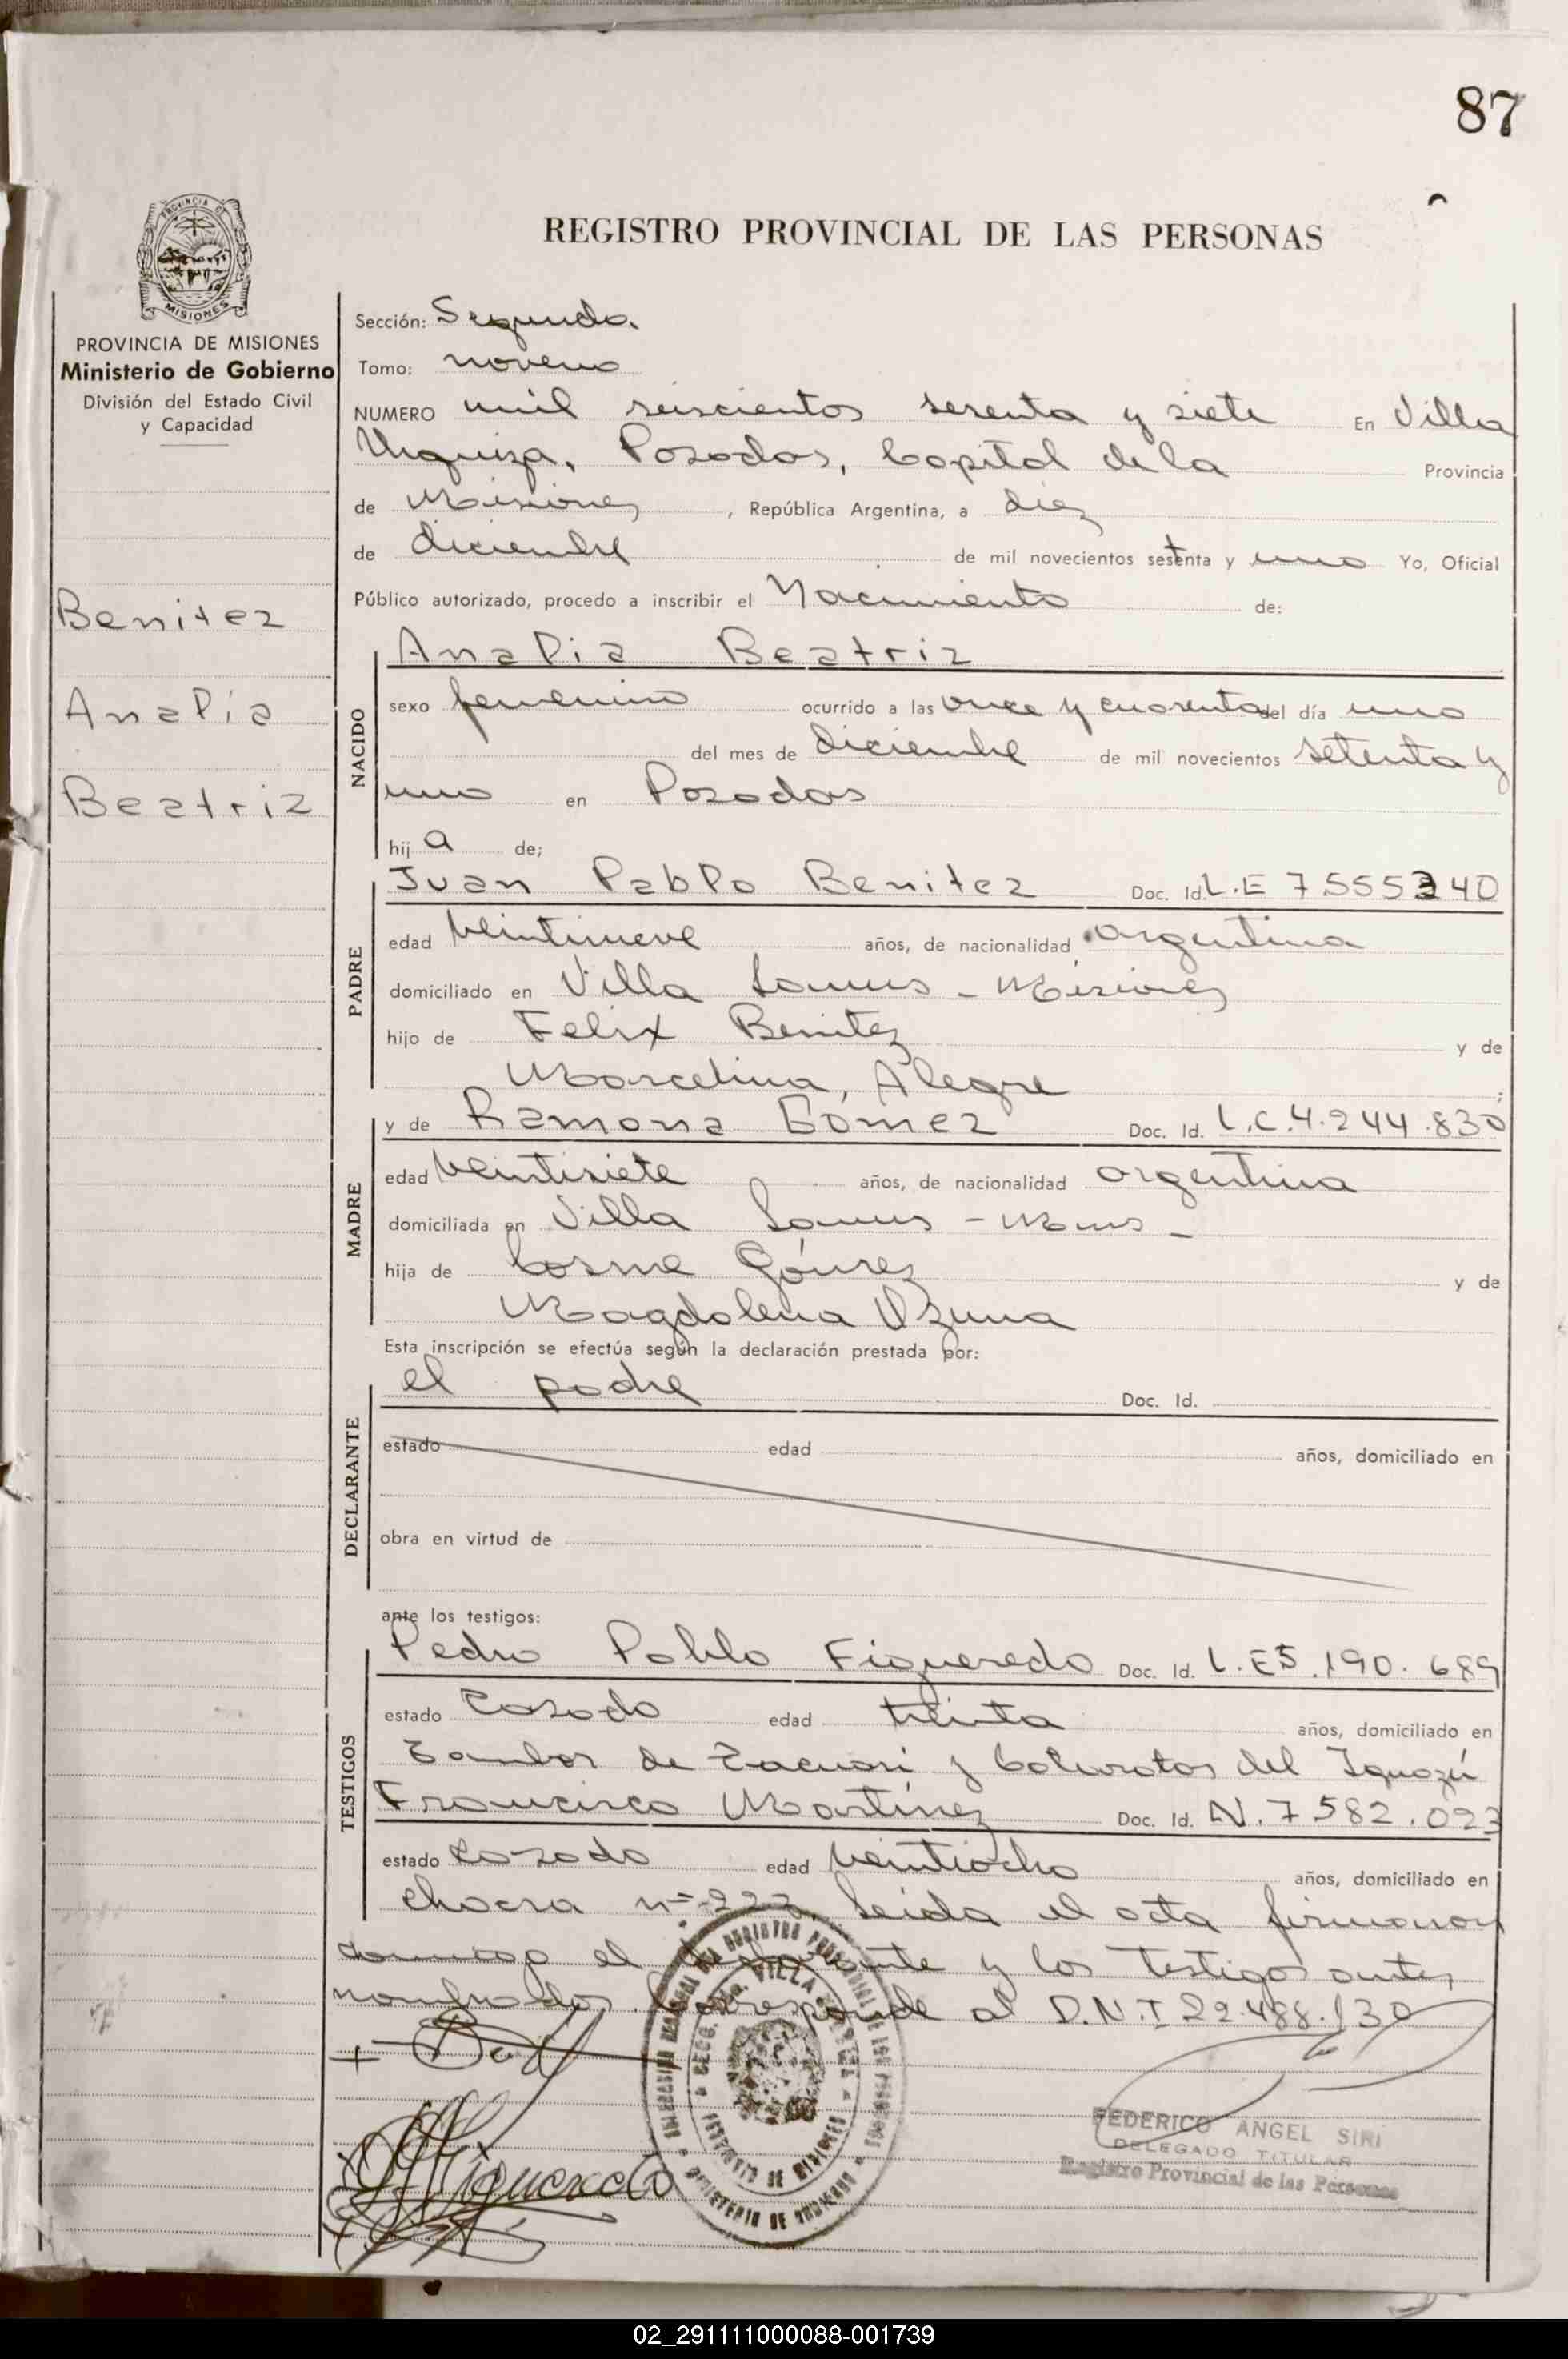 87
REGISTRO PROVINCIAL DE LAS PERSONAS
PROVINCIA DE MISIONES
Ministerio de Gobierno
División del Estado Civil
y Capacidad
Benitez
Analía
Beatriz
Sección: Segunda.
Tomo: noveno
NUMERO mil seiscientos sesenta y siete En Villa
Urquiza, Posadas, Capital de la Provincia
de Misiones, República Argentina, a diez
de diciembre de mil novecientos setenta y uno Yo, Oficial
Público autorizado, procedo a inscribir el Nacimiento de:
NACIDO
Analia Beatriz
sexo femenino ocurrido a las once y cuarenta del día uno
del mes de diciembre de mil novecientos setenta y
uno en Posadas
hija de;
PADRE
Juan Pablo Benitez Doc. Id. L.E 7.555340
edad veintinueve años, de nacionalidad argentina
domiciliado en Villa Lanus - Misiones
hijo de Felix Benitez y de
Marcelina Alegre ;
MADRE
y de Ramona Gómez Doc. Id. L.C.4.244.830
edad veintisiete años, de nacionalidad argentina
domiciliada en Villa Lanus - Mnes -
hija de Cosme Gómez y de
Magdalena Ozuna
Esta inscripción se efectúa según la declaración prestada por:
DECLARANTE
el padre Doc. Id.
estado edad años, domiciliado en
obra en virtud de
ante los testigos:
TESTIGOS
Pedro Pablo Figueredo Doc. Id. L.E 5.190.689
estado casado edad treinta años, domiciliado en
Tambor de Tacuari y Cataratas del Iguazú
Francisco Martínez Doc. Id. N. 7.582.023
estado casado edad veintiocho años, domiciliado en
chacra nº 222. Leida el acta firmaron
conmigo el declarante y los testigos antes
nombrados. Corresponde al D.N.I 22.488.130
FEDERICO ANGEL SIRI
DELEGADO TITULAR
Registro Provincial de las Personas
02_291111000088-001739